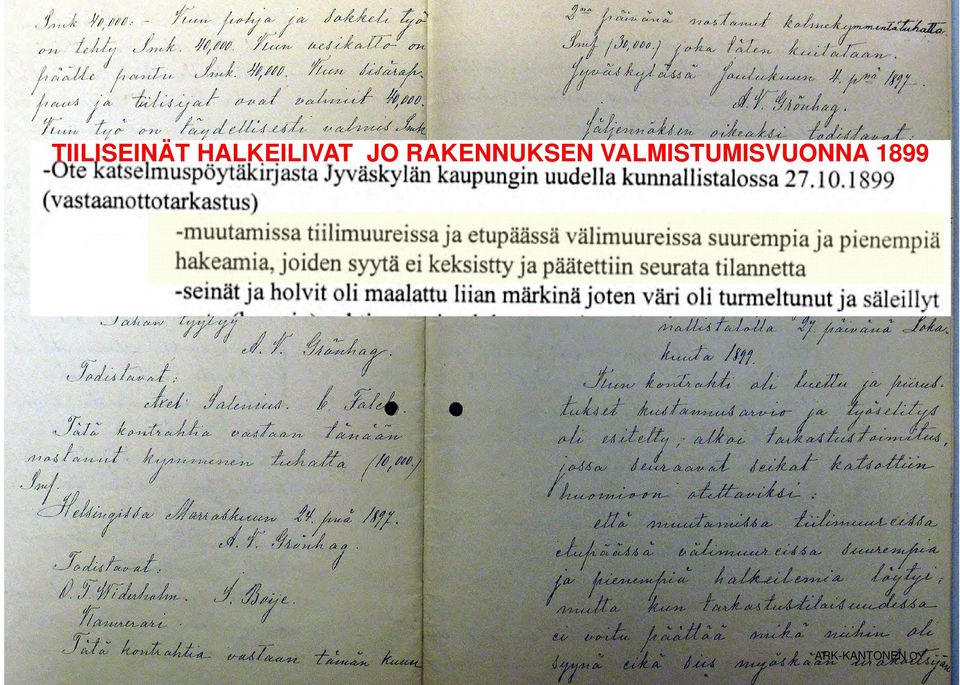 Smk 40,000:- Kun pohja ja sokkeli työ
on tehty Smk. 40,000. Kun vesikatto on
päälle pantu Smk. 40,000. Kun sisärap-
paus ja tiilisijat ovat valmiit 40,000.
Kun työ on täydellisesti valmis Smk
2na päivänä nostanut kolmekymmentätuhatta
Smk (30,000.) joka täten kuitataan.
Jyväskylässä Joulukuun 4. pnä 1897.
A. V. Grönhag.
Jäljennöksen oikeaksi todistavat:
TIILISEINÄT HALKEILIVAT JO RAKENNUKSEN VALMISTUMISVUONNA 1899
-Ote katselmuspöytäkirjasta Jyväskylän kaupungin uudella kunnallistalossa 27.10.1899
(vastaanottotarkastus)
-muutamissa tiilimuureissa ja etupäässä välimuureissa suurempia ja pienempiä
hakeamia, joiden syytä ei keksistty ja päätettiin seurata tilannetta
-seinät ja holvit oli maalattu liian märkinä joten väri oli turmeltunut ja säleillyt
Tähän tyytyy
A. V. Grönhag.
Todistavat:
Axel Salenius. C. Falck.
Tätä kontrahtia vastaan tänään
nostanut kymmenen tuhatta (10,000.)
Smk.
Helsingissä Marraskuun 24. pnä 1897.
A. V. Grönhag
Todistavat:
O. F. Widerholm. S. Boije.
Kamreerari.
Tätä kontrahtia vastaan tämän kuun
nallistalolla 27 päivänä Loka-
kuuta 1899.
Kun kontrahti oli luettu ja piirus-
tukset kustannusarvio ja työselitys
oli esitelty, alkoi tarkastustoimitus,
jossa seuraavat seikat katsottiin
huomioon otettaviksi:
että muutamissa tiilimuureissa
etupäässä välimuureissa suurempia
ja pienempiä halkeilemia löytyi;
mutta kun tarkastustilaisuudessa
ei voitu päättää mikä niihin oli
syynä eikä siis myöskään urakoitsijan
ARK-KANTONEN OY